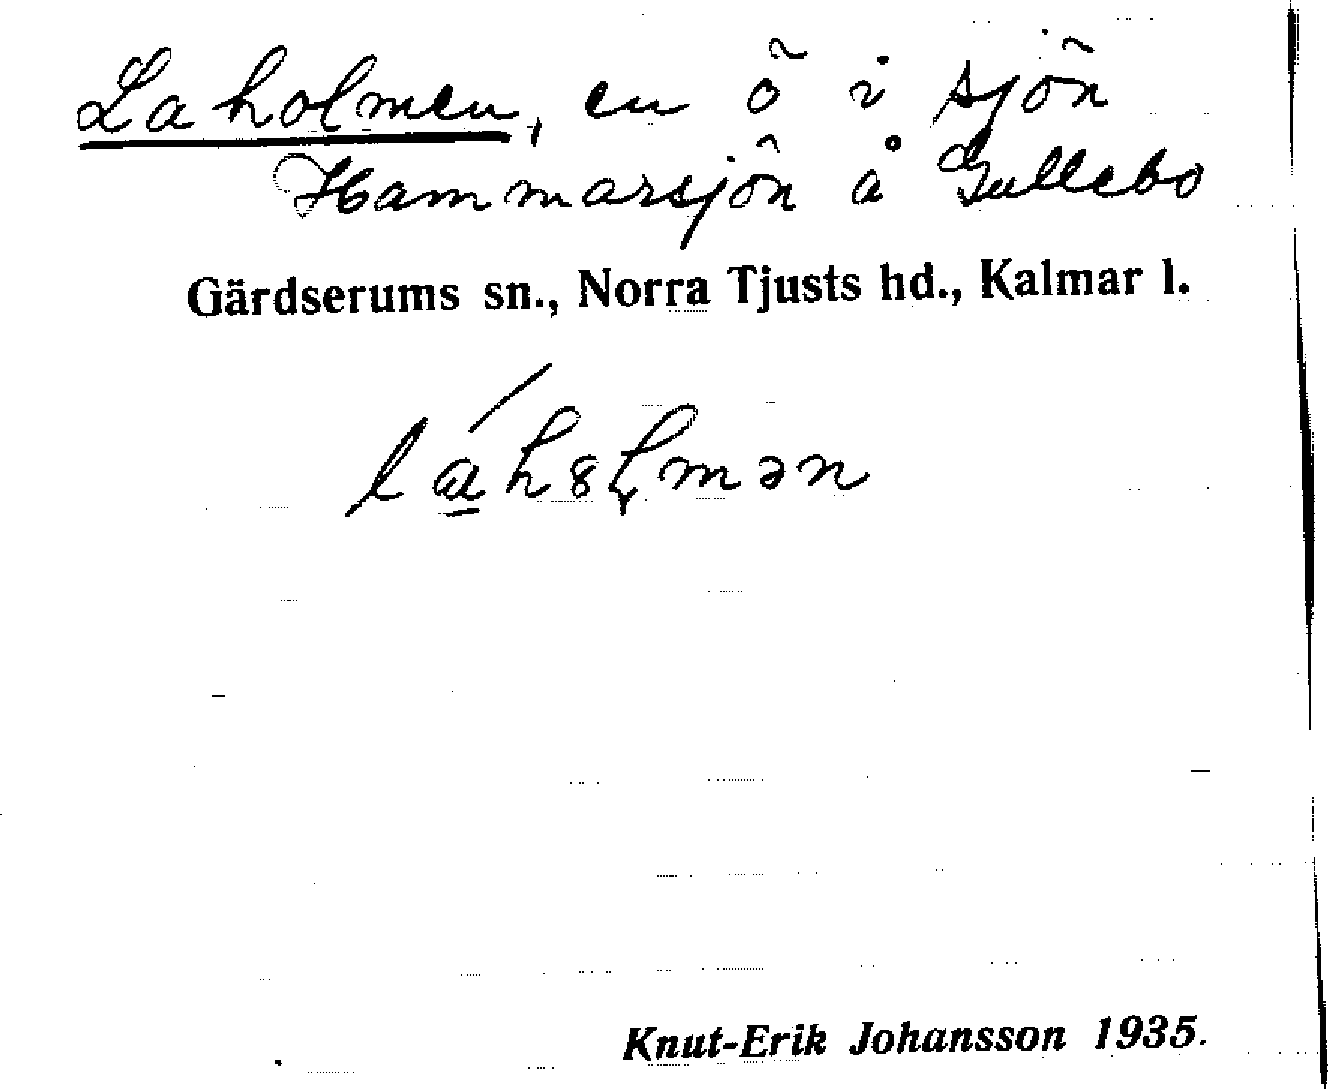 Laholmen, en ö i sjön
Hammarsjön å Gullebo
Gärdserums sn., Norra Tjusts hd., Kalmar l.
Knut-Erik Johansson 1935.